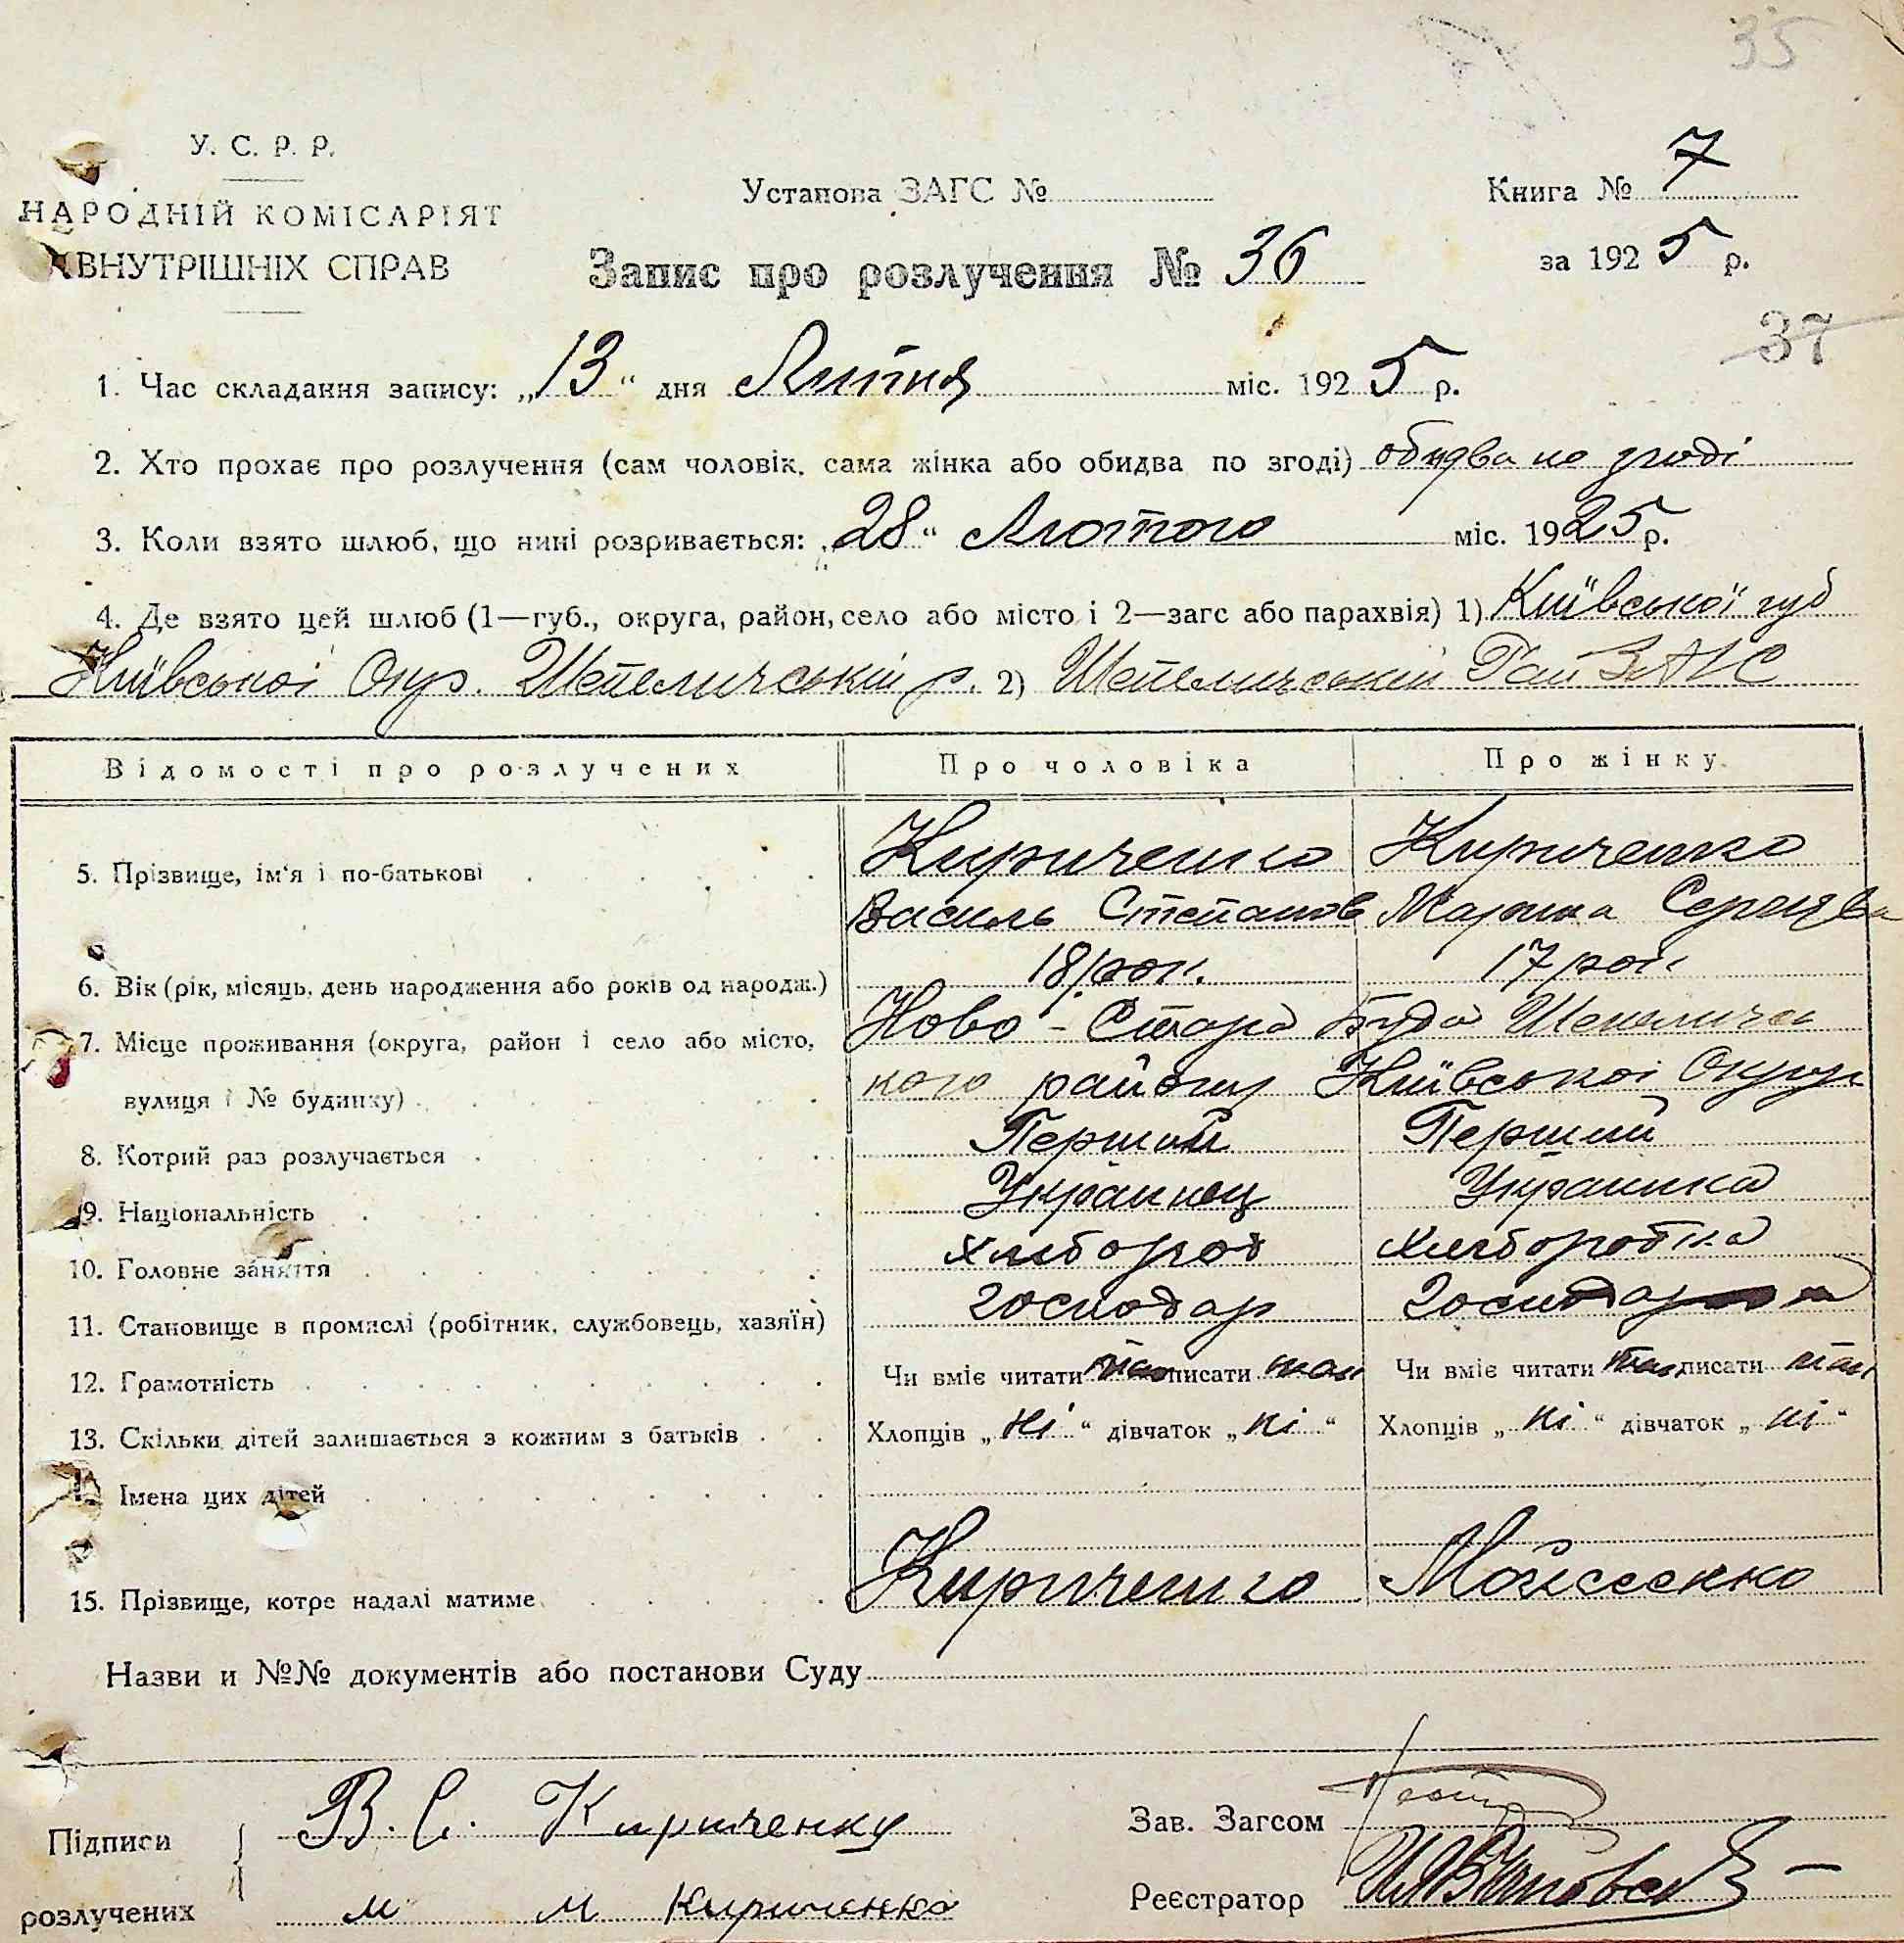 35
У. С. Р. Р.
НАРОДНІЙ КОМІСАРІЯТ
ВНУТРІШНІХ СПРАВ
Установа ЗАГС №
Книга № 7
за 1925 р.
Запис про розлучення № 36
37
1. Час складання запису: „13“ дня Липня міс. 1925 р.
2. Хто прохає про розлучення (сам чоловік, сама жінка або обидва по згоді) обидва по згоді
3. Коли взято шлюб, що нині розривається: „28“ Лютого міс. 1925 р.
4. Де взято цей шлюб (1—губ., округа, район, село або місто і 2—загс або парахвія) 1) Київської губ
Київської Окр. Шепеличський р. 2) Шепеличський Рай ЗАГС
Відомості про розлучених Про чоловіка Про жінку
5. Прізвище, ім'я і по-батькові Кириченко Кириченко
Василь Степанов Марина
6. Вік (рік, місяць, день народження або років од народж.) 18 рок. 17 рок
7. Місце проживання (округа, район і село або місто, Ново-Стара Буда Шепеличсь
вулиця і № будинку) кого району Київської Округи
8. Котрий раз розлучається Перший Перший
9. Національність Українец Українка
10. Головне заняття хлібороб хліборобка
11. Становище в промислі (робітник, службовець, хазяїн) господар господар
12. Грамотність Чи вміє читати так писати так Чи вміє читати так писати так
13. Скільки дітей залишається з кожним з батьків Хлопців „ні“ дівчаток „ні“ Хлопців „ні“ дівчаток „ні“
Імена цих дітей
15. Прізвище, котре надалі матиме Кириченко Мойсеенко
Назви и №№ документів або постанови Суду
Підписи В. С. Кириченку Зав. Загсом
розлучених м м Кириченко Реєстратор